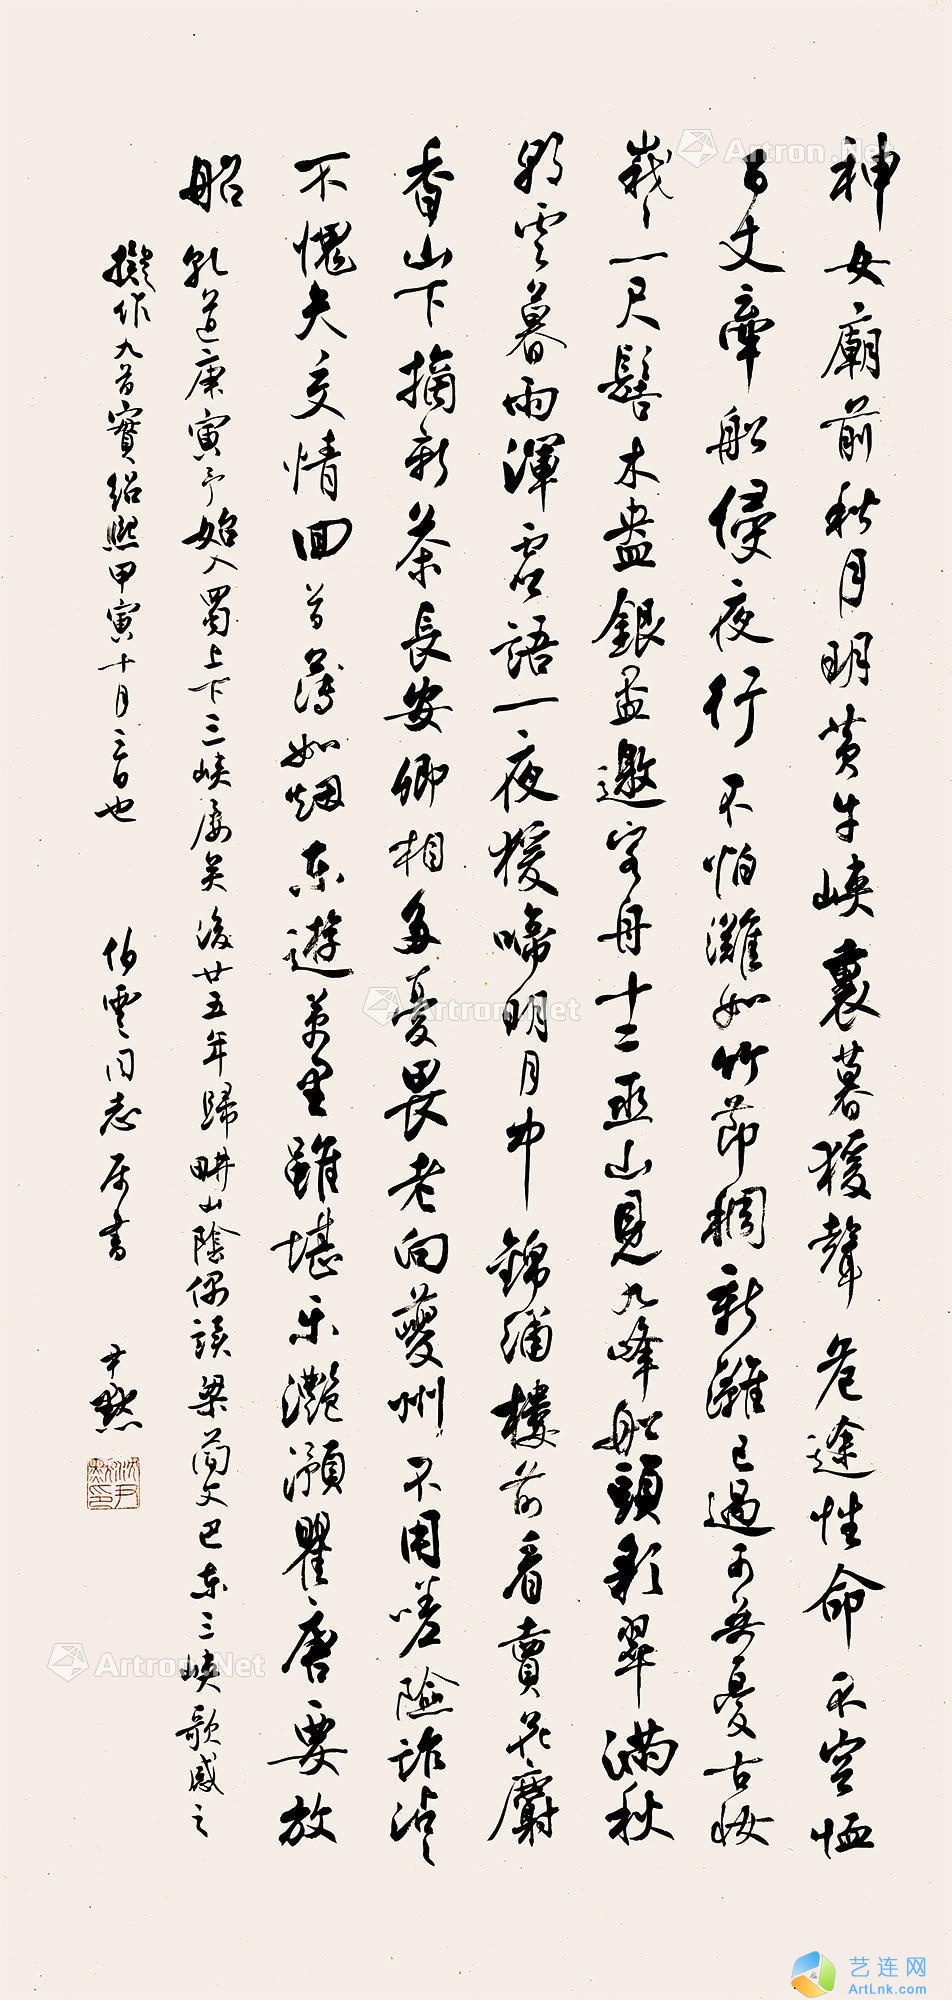 神女廟前秋月明黄牛峽裏暮猨聲危途性命不容恤
百丈牽船侵夜行不怕灘如竹節稠新灘已過可無憂古妝
峩々一尺髻木盎銀盂邀客舟十二巫山見九峰船頭彩翠滿秋
朝雲暮雨渾虚語一夜猨啼明月中錦繡樓前看賣花麝
香山下摘新茶長安卿相多憂畏老向夔州不用嗟險詐沾々
不愧天交情回首薄如烟東遊萬里雖堪樂灩澦瞿唐要放
船 乾道庚寅予始入蜀上下三峽屢矣後廿五年歸畊山陰偶讀梁簡文巴東三峽歌感之
擬作九首實紹熙甲寅十月二日也 伯雲同志屬書 尹默
沈尹默印
Artron.Net
Artron.Net
Artron.Net
艺连网
ArtLnk.com